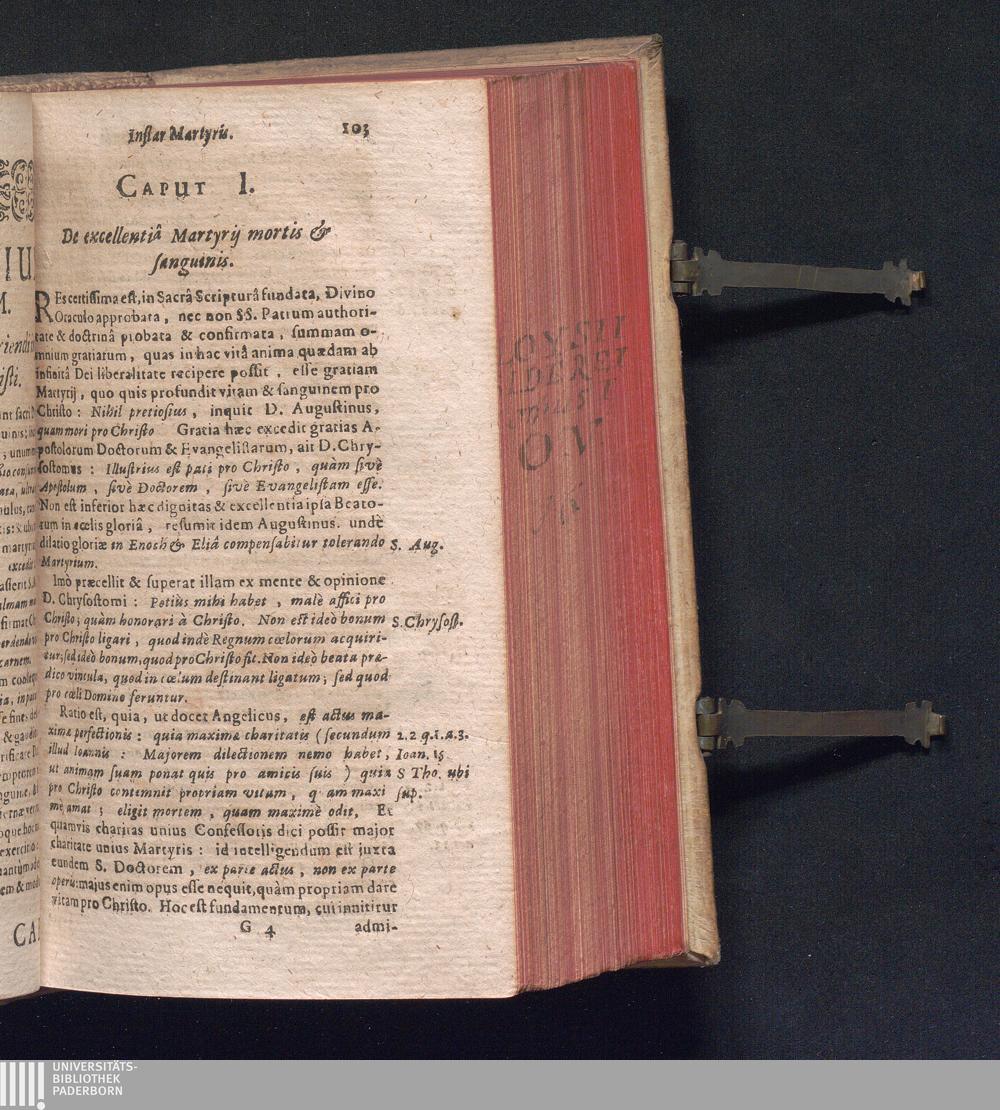 Instar Martyris. 103
CAPUT I.
De excellentiâ Martyrij mortis &
sanguinis.
REs certissima est, in Sacrâ Scripturâ fundata, Divino
Oraculo approbata, nec non SS. Patrum authori-
tate & doctrinâ probata & confirmata, summam o-
mnium gratiarum, quas in hac vitâ anima quædam ab
infinitâ Dei liberalitate recipere possit, esse gratiam
Martyrij, quo quis profundit vitam & sanguinem pro
Christo: Nihil pretiosius, inquit D. Augustinus,
quam mori pro Christo Gratia hæc excedit gratias A-
postolorum Doctorum & Evangelistarum, ait D. Chry-
sostomus: Illustrius est pati pro Christo, quàm sivè
Apostolum, sivè Doctorem, sivè Evangelistam esse.
Non est inferior hæc dignitas & excellentia ipsa Beato-
rum in cœlis gloriâ, resumit idem Augustinus. undè
dilatio gloriæ in Enoch & Eliâ compensabitur tolerando S. Aug.
Martyrium.
Imò præcellit & superat illam ex mente & opinione
D. Chrysostomi: Potiùs mihi habet, malè affici pro
Christo; quàm honorari à Christo. Non est ideò bonum S. Chrysost.
pro Christo ligari, quod indè Regnum cœlorum acquiri-
tur; sed ideò bonum, quod pro Christo fit. Non ideò beata præ-
dico vincula, quod in cœlum destinant ligatum; sed quod
pro cœli Domino feruntur.
Ratio est, quia, ut docet Angelicus, est actus ma-
ximæ perfectionis: quia maximæ charitatis (secundum 2.2 q.1.a.3.
illud Ioannis: Majorem dilectionem nemo habet, Ioan. 15
ut animam suam ponat quis pro amicis suis) quia S Tho. ubi
pro Christo contemnit propriam vitam, q am maxi sup.
mè amat; eligit mortem, quam maximè odit, Et
quamvis charitas unius Confessoris dici possit major
charitate unius Martyris: id intelligendum est juxta
eundem S. Doctorem, ex parte actus, non ex parte
operis: majus enim opus esse nequit, quàm propriam dare
vitam pro Christo. Hoc est fundamentum, cui innititur
G 4 admi-
UNIVERSITÄTS-
BIBLIOTHEK
PADERBORN